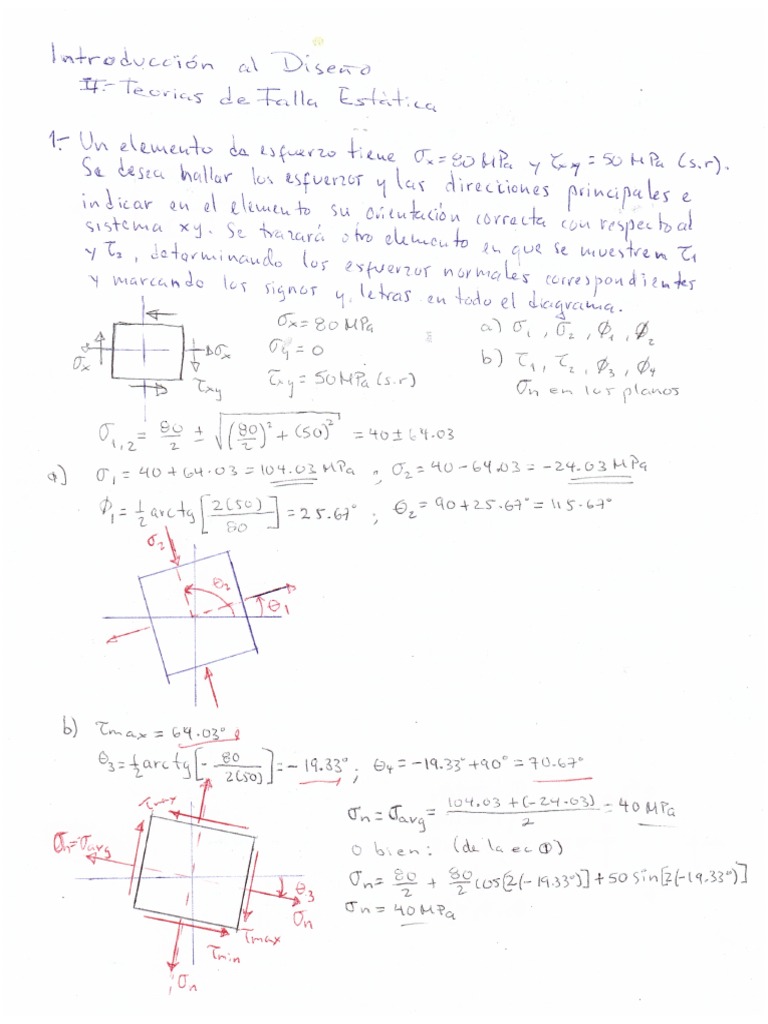 Introducción al Diseño
II.- Teorías de Falla Estática
1.- Un elemento de esfuerzo tiene σx = 80 MPa y τxy = 50 MPa (s.r).
Se desea hallar los esfuerzos y las direcciones principales e
indicar en el elemento su orientación correcta con respecto al
sistema xy. Se trazará otro elemento en que se muestrem τ1
y τ2, determinando los esfuerzos normales correspondientes
y marcando los signos y letras en todo el diagrama.
σx = 80 MPa
σy = 0
τxy = 50 MPa (s.r)
a) σ1, σ2, ϕ1, ϕ2
b) τ1, τ2, ϕ3, ϕ4
σn en los planos
σx
σx
τxy
σ1,2 = 80/2 ± √((80/2)² + (50)²) = 40 ± 64.03
a) σ1 = 40 + 64.03 = 104.03 MPa ; σ2 = 40 - 64.03 = -24.03 MPa
ϕ1 = 1/2 arctg [2(50)/80] = 25.67° ; θ2 = 90 + 25.67° = 115.67°
σ2
θ2
θ1
b) τmax = 64.03°
θ3 = 1/2 arctg [- 80/2(50)] = -19.33° ; θ4 = -19.33° + 90° = 70.67°
σn = σavg = 104.03 + (-24.03)/2 = 40 MPa
o bien: (de la ec ①)
σn = 80/2 + 80/2 cos[2(-19.33°)] + 50 sin[2(-19.33°)]
σn = 40 MPa
σn = σavg
θ3
σn
τmax
τmin
σn